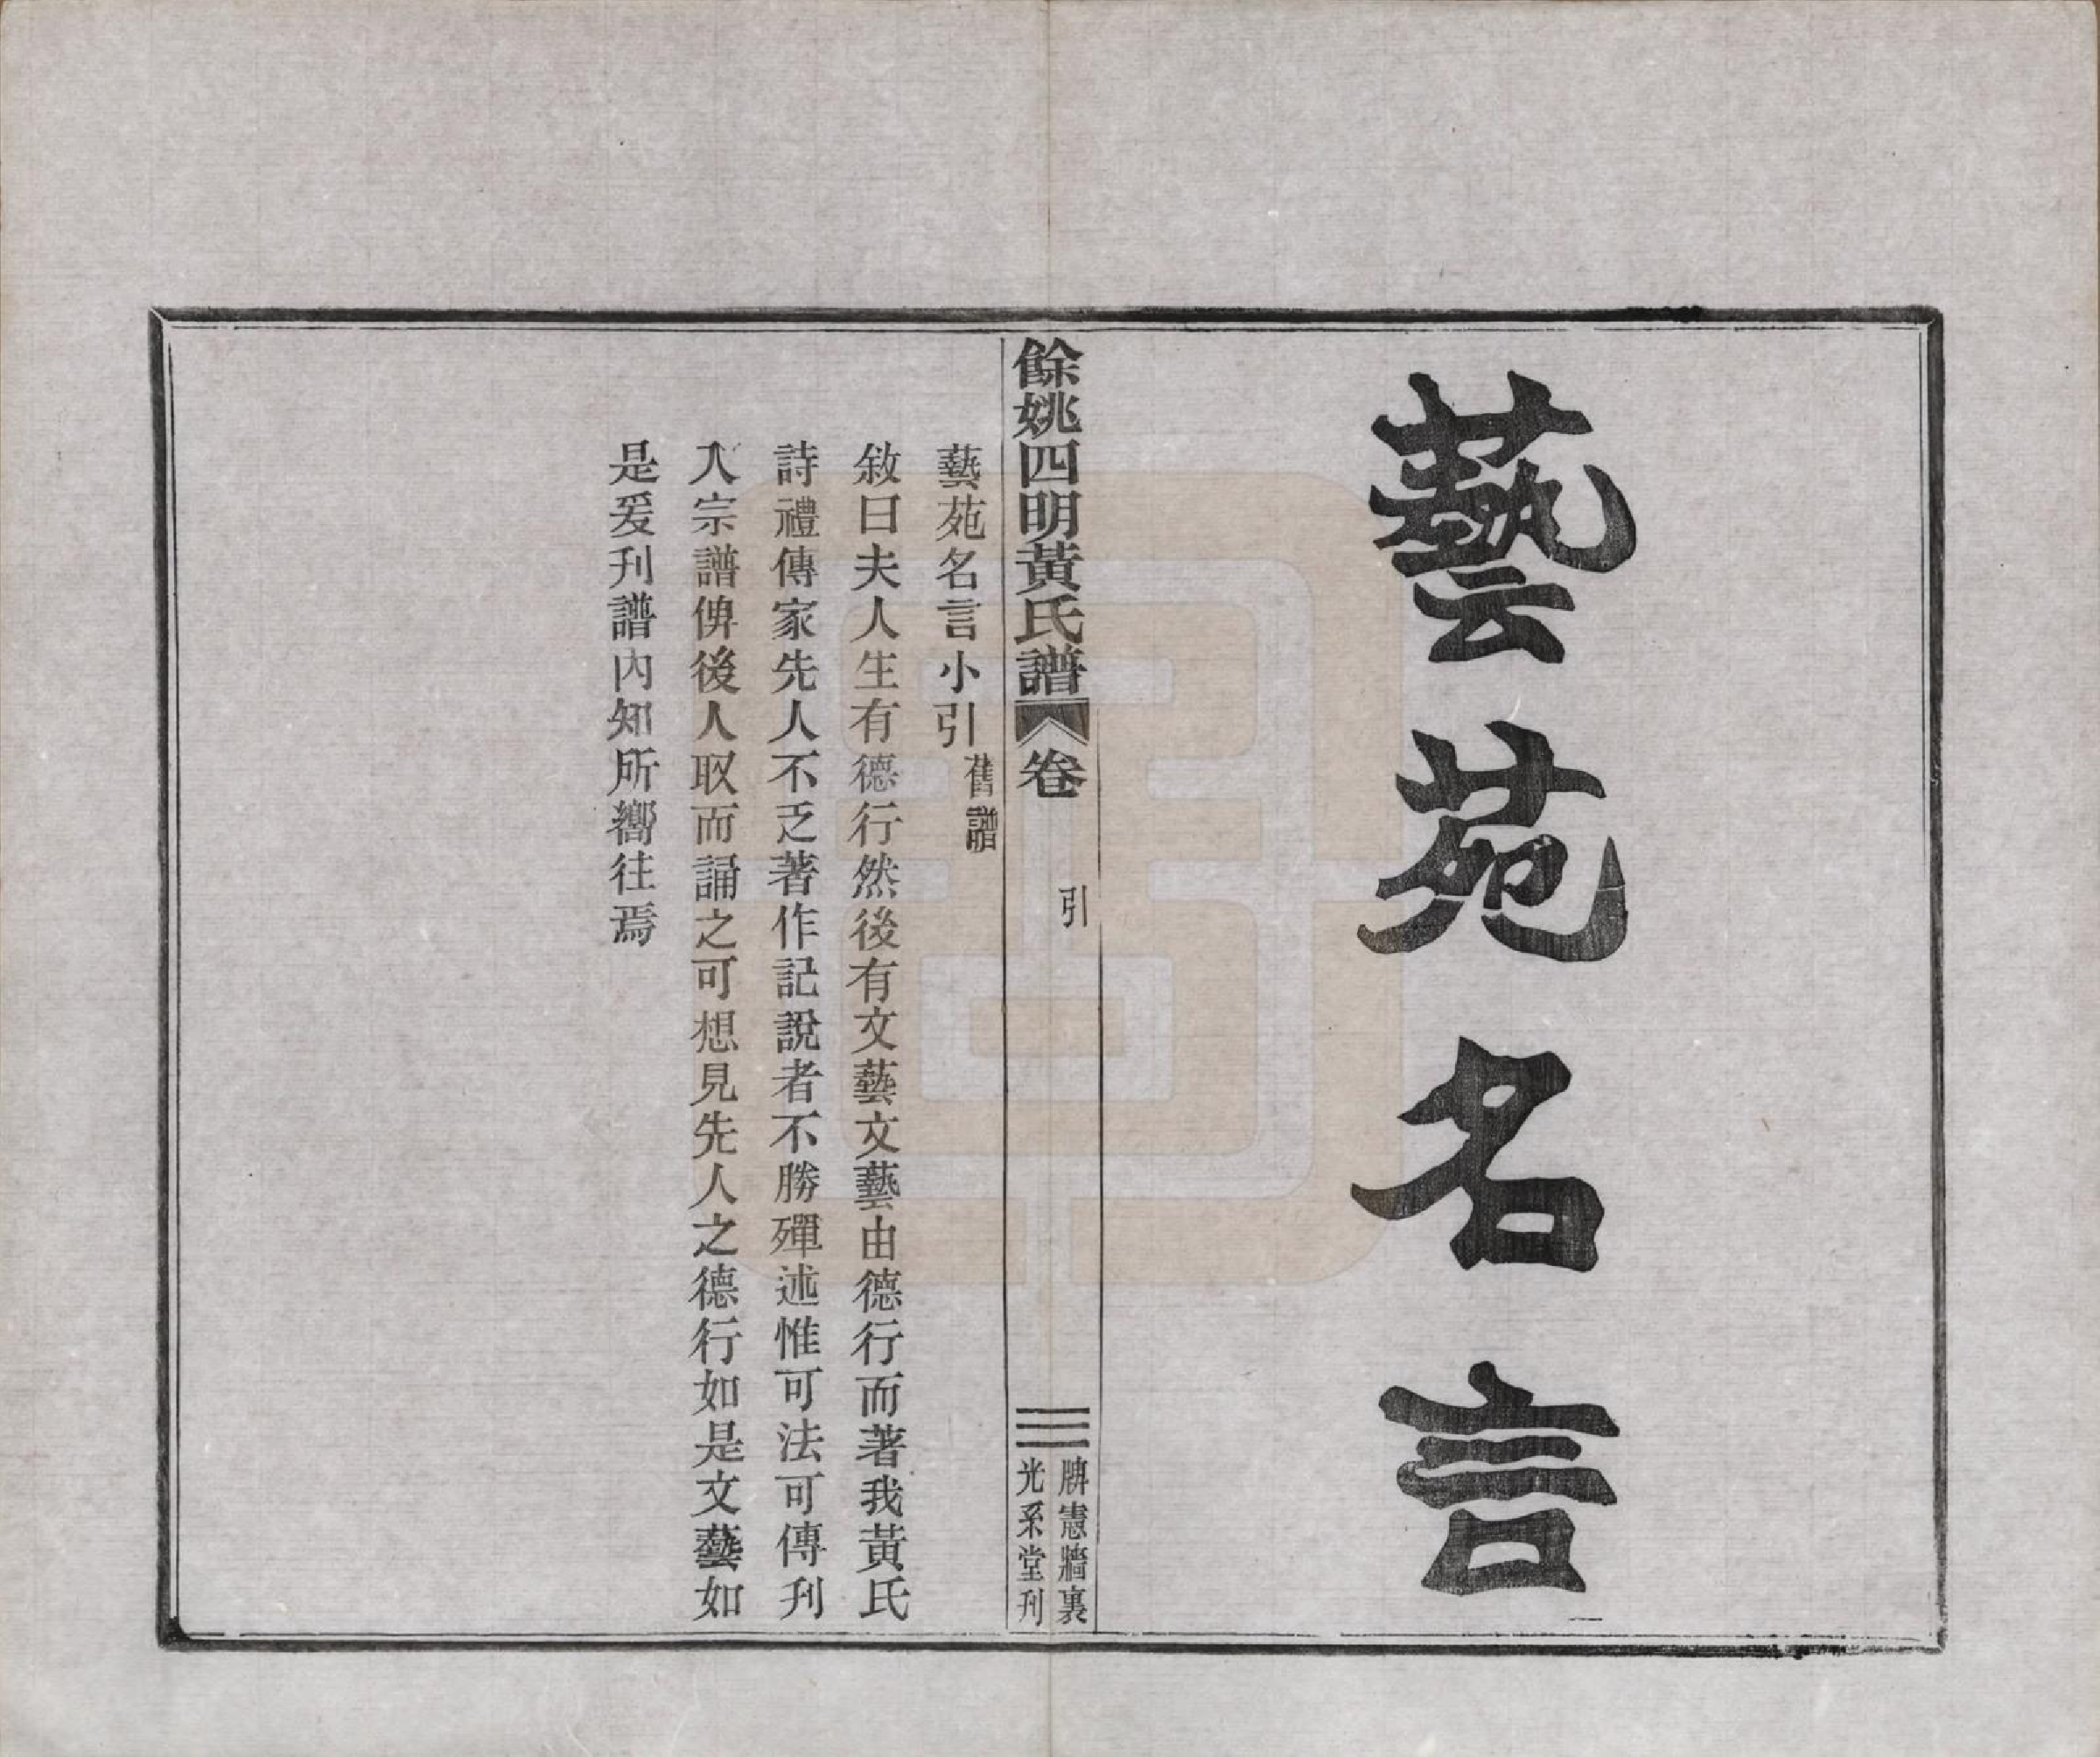 藝苑名言
餘姚四明黃氏譜 卷 引
腁憲牆裏
光系堂刊
藝苑名言小引 舊譜
敘曰夫人生有德行然後有文藝文藝由德行而著我黃氏
詩禮傳家先人不乏著作記說者不勝殫述惟可法可傳刋
入宗譜俾後人取而誦之可想見先人之德行如是文藝如
是爰刋譜內知所嚮往焉